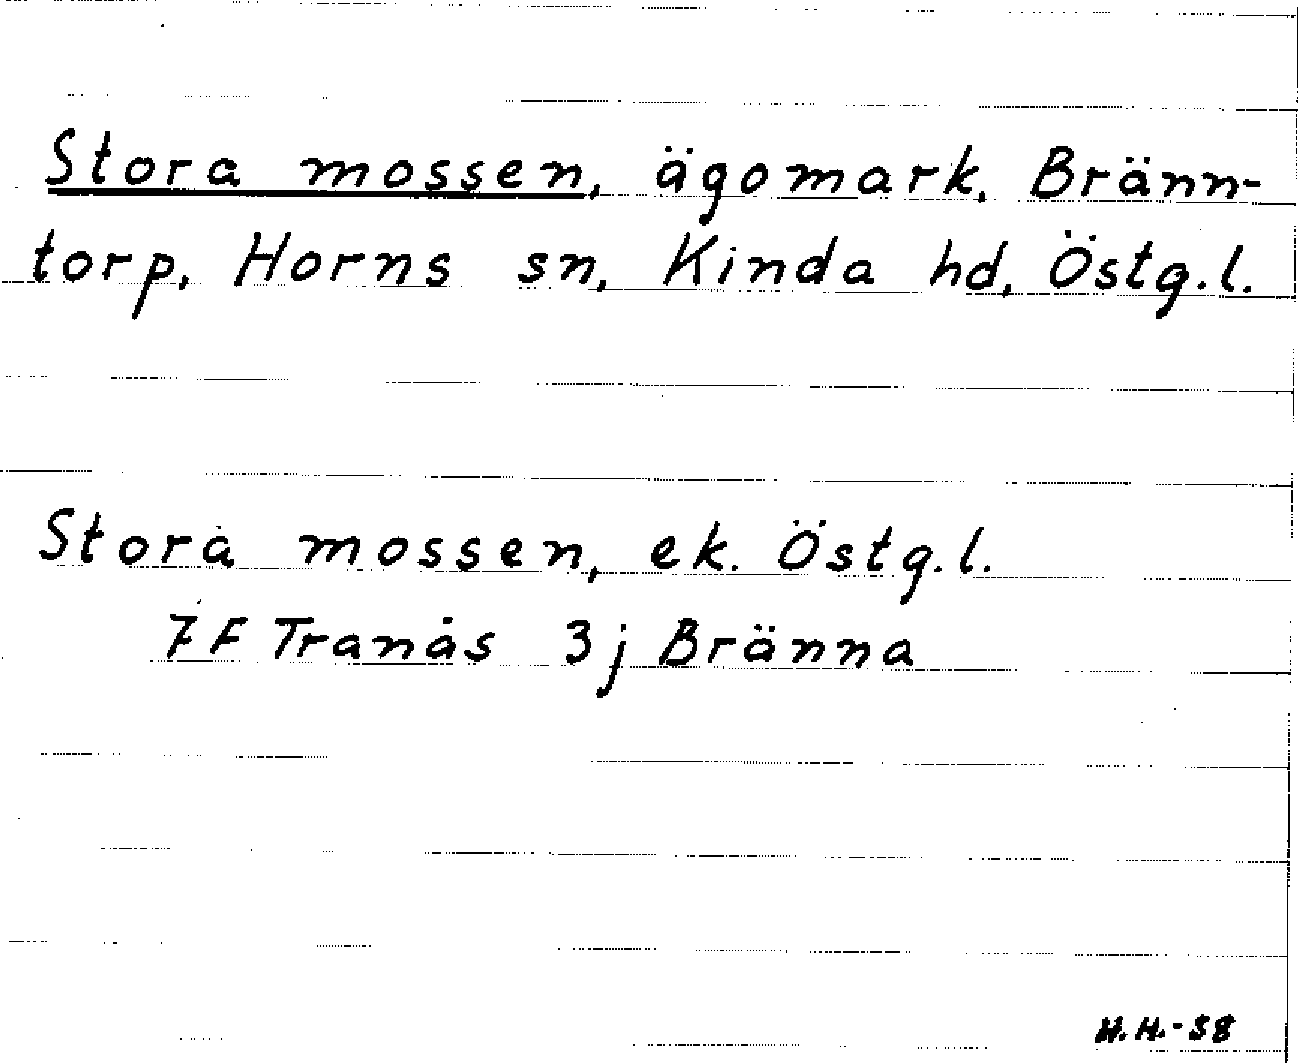 Stora mossen, ägomark, Bränn-
torp, Horns sn, Kinda hd, Östg.l.
Stora mossen, ek. Östg.l.
7F Tranås 3j Bränna
H.H.-58